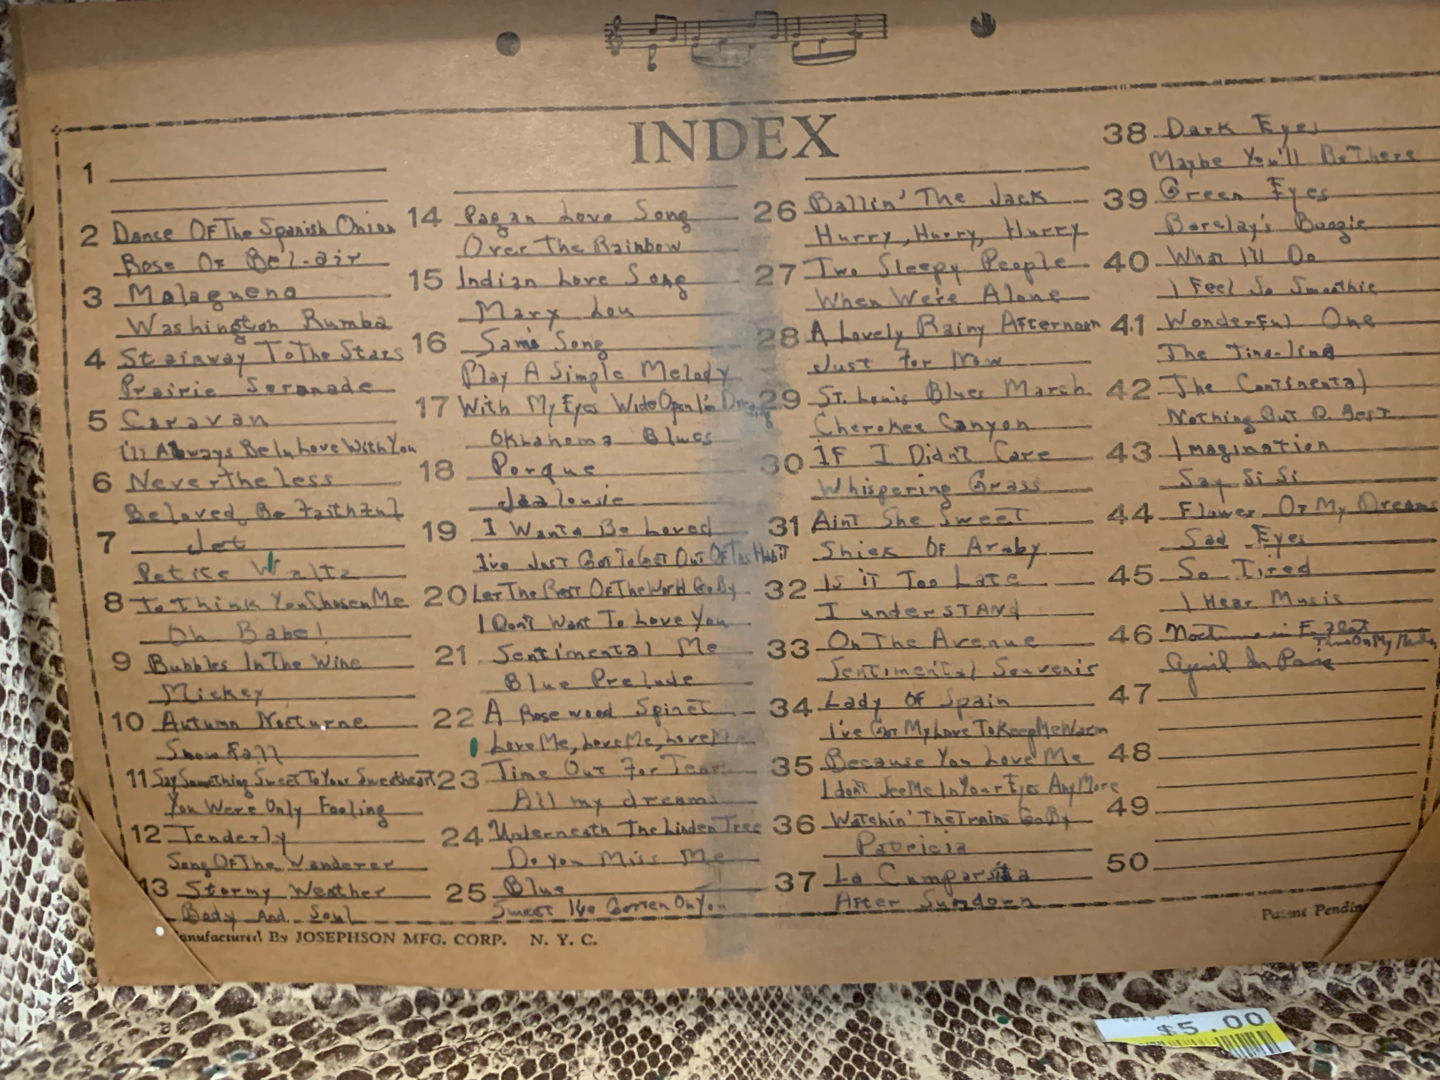 INDEX
1
2 Dance Of The Spanish Onion
Rose Of Bel-air
3 Malaguena
Washington Rumba
4 Stairway To The Stars
Prairie Serenade
5 Caravan
i'll Always Be In Love With You
6 Nevertheless
Beloved, Be Faithful
7 Jet
Petite Waltz
8 To Think You Chosen Me
Oh Babe!
9 Bubbles In The Wine
Mickey
10 Autumn Nocturne
Snow Fall
11 Say Something Sweet To Your Sweetheart
You Were Only Fooling
12 Tenderly
Song Of The Wanderer
13 Stormy Weather
Body And Soul
14 Pagan Love Song
Over The Rainbow
15 Indian Love Song
Mary Lou
16 Sam's Song
Play A Simple Melody
17 With My Eyes Wide Open I'm
Oklahoma Blues
18 Porque
Jealousie
19 I Wanta Be Loved
I've Just Got To Get Out Of The Habit
20 Let The Rest Of The World Go By
I Don't Want To Love You
21 Sentimental Me
Blue Prelude
22 A Rosewood Spinet
Love Me, Love Me, Love Me
23 Time Out For Tears
All my dreams
24 Underneath The Linden Tree
Do You Miss Me
25 Blue
Sweet I've Gotten On You
26 Ballin' The Jack
Hurry, Hurry, Hurry
27 Two Sleepy People
When We're Alone
28 A Lovely Rainy Afternoon
Just For Now
29 St. Louis Blues March
Cherokee Canyon
30 If I Didn't Care
Whispering Grass
31 Ain't She Sweet
Shiek Of Araby
32 Is it Too Late
I understand
33 On The Avenue
Sentimental Souvenirs
34 Lady Of Spain
I've Got My Love To Keep Me Warm
35 Because You Love Me
I don't See Me In Your Eyes Any More
36 Watchin' The Trains Go By
Patricia
37 La Cumparsita
After Sundown
38 Dark Eyes
Maybe You'll Be There
39 Green Eyes
Barclay's Boogie
40 What I'll Do
I Feel So Smoothie
41 Wonderful One
The Tina-lina
42 The Continental
Nothing But D. Best
43 Imagination
Say Si Si
44 Flower Of My Dreams
Sad Eyes
45 So Tired
I Hear Music
46 Nocturne in E flat
April In Paris
47
48
49
50
anufactured By JOSEPHSON MFG. CORP. N. Y. C.
Patent Pending
$5.00